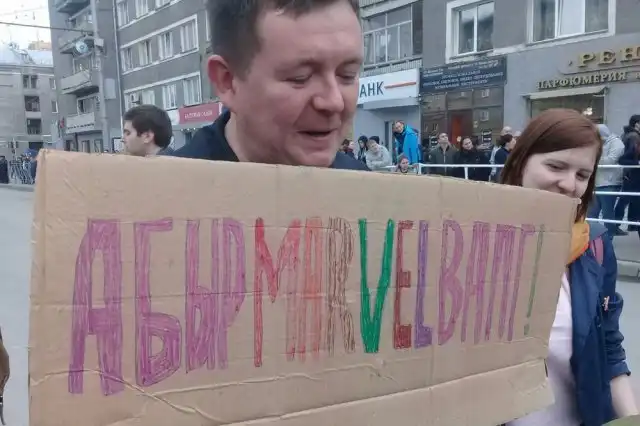 АБЫРMARVELВАЛГ!
АНК
РЕН
ПАРФЮМЕРИЯ